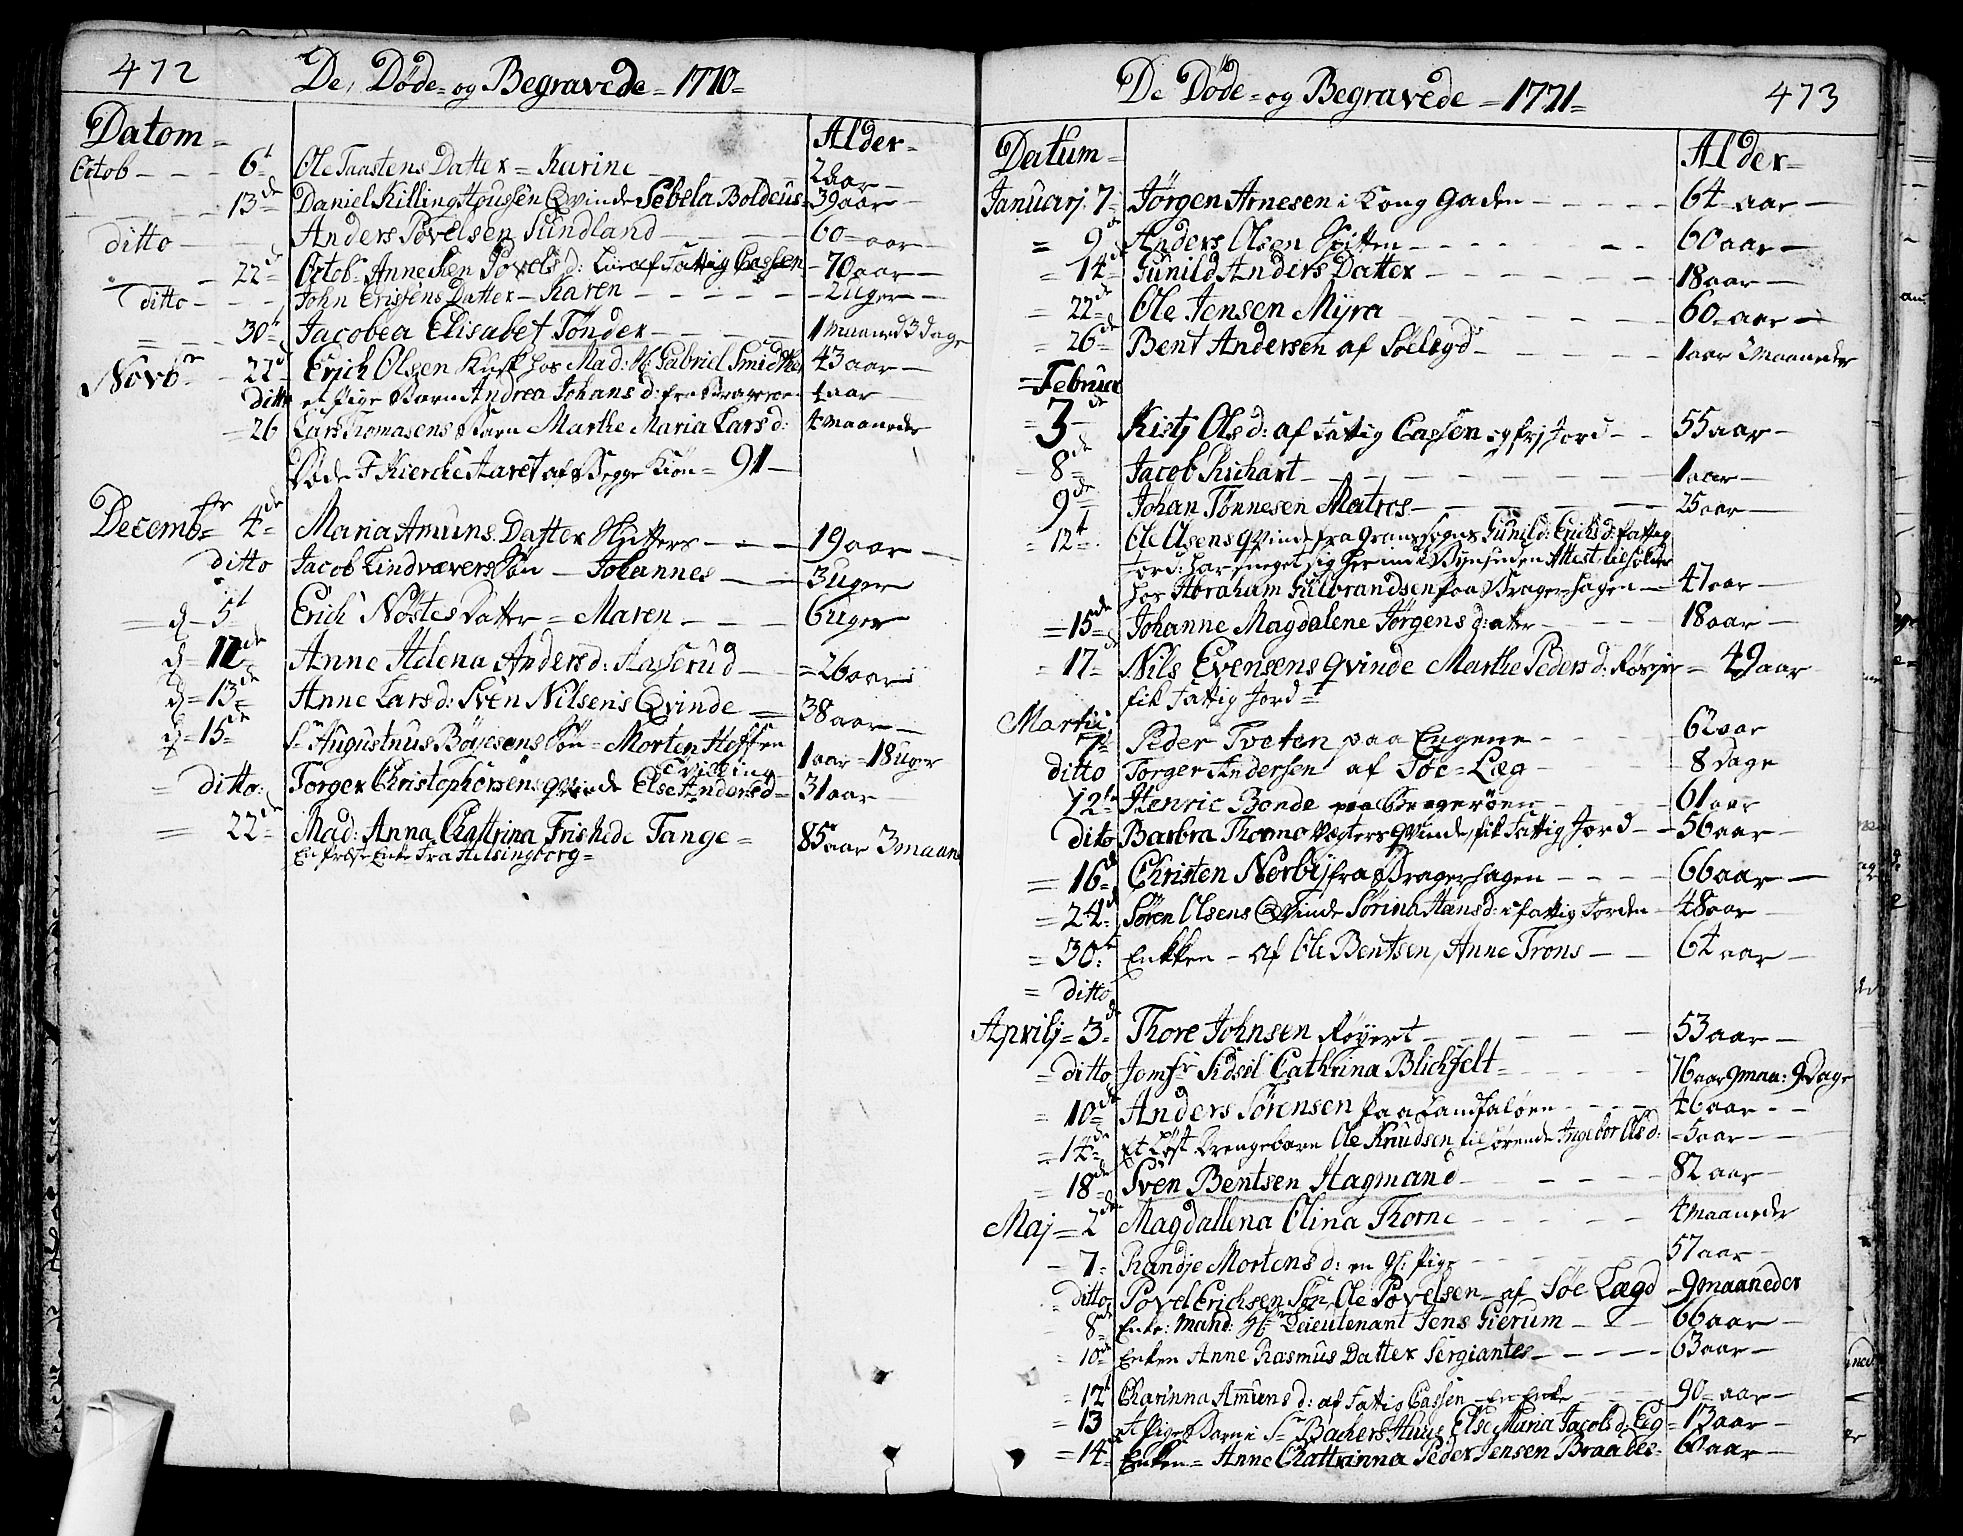 472
De, Døde= og Begravede= 1770=
Datom=
Alder=
Octob - - - 6t Ole Taastens Datter = Karine - - - 2 aar -
- - - 13de Daniel Killing Houssen Qvinde Sebela Boldeus = 39 aar -
ditto - - - Anders Povelsen Sundland - - - 60 = aar -
- - 22de Octobr Annechen Povels d: af Fattig Cassen - 70 aar -
ditto - - - John Erissens Datter - Karen - - - - - 2 Uger -
= - - 30t Jacobea Elisabet Tønder - - - - 1 Maaned 3 dage
Novbr - 22d Erich Olsen Kusk hos Mad: Hr Gabriel Smidt 43 aar -
ditto et Pige Barn Andrea Johans d: fra Bragerøen 4 aar -
= 26 Lars Tomasens Barn Marthe Maria Lars d: 4 Maaneder
Døde J Kierche Aaret af Begge Kiøn = 91 -
Decembr = 4de Maria Amuns Datter Hytters - - - 19 aar -
ditto Jacob Lindvævers Søn - Johannes - - - 3 uger
= d - 5t Erich Nøstes Datter = Maren - - - 6 uger
d = 12de Anne Helena Anders d: Aasserud - = 26 aar
d = 13de Anne Lars d: Sven Nilsens Qvinde = 38 aar -
d = 15de Sr Augustnus Bøyesens Søn = Morten Hoffen
1 aar = 18 uger
= ditto: Torger Christophersens qvinde Else Anders d = 31 aar -
= 22d Mad: Anna Chattrina Frishede Tange = 85 aar 3 maane
En Præste Enke Fra Helsingborg =
De Døde= og Begravede = 1771=
473
Datum=
Alder=
Januarj 7= Jørgen Arnesen i Kong Gaden - - - - - 64 aar -
= 9d Anders Olsen Hytten - - - - - 60 aar -
= 14de Gunild Anders Datter - - - - - 18 aar -
= 22de Ole Jensen Myra - - - - - 60 - aar -
= 26de Bent Andersen af Søelægd - - - - - 1 aar 2 Maaneder
= Februar
= 3de Kistj Ols d: af Fattig Cassen og frj Jord - - 55 aar -
- 8de Jacob Richart - - - - - 1 aar -
9de Johan Tønnesen Matros - - - - - 25 aar -
= 12t Ole Olsens qvinde fra Grans Sogns Gunild: Erichs d: fattig
Jord: har sneget sig her ind i Byen uden Attest tilholdt
hos Abraham Gulbrandsen paa Bragerhagen - 47 aar -
= 15de Johanne Magdalene Jørgens d:atter - - - - 18 aar -
= 17de Nils Evensens qvinde Marthe Peders d: Røyer = 49 aar
fik Fattig Jord =
Martii
7d Peder Tveten paa Engene - - - - 62 aar
ditto Torger Andersen af Søe = Læg - - - - 8 Dage
12te Henric Bonde paa Bragerøen - - - - 61 aar
dito Barbra Thomo Vægters qvinde, fik Fattig Jord - - 56 aar -
= 16d Christen Norbÿ fra Bragerhagen - - - - 66 aar -
= 24d Søren Olsens Qvinde Sørina Hans d: i fattig Jorden - 48 aar -
= 30te Enkken - af Ole Bentsen, Anne Trons - - 64 aar -
= ditto
Aprilj = 3d Thore Johnsen Røyert - - - - 53 aar -
= ditto Jomfr Sidsel Cathrina Blichfelt = - - - - 76 aar 9 maa: 9 Dage
= 10de Anders Sørensen paa Landfaløen - - - - 46 aar - -
= 14de Et Løst Drengebarn Ole Knudsen tilhørende Ingebor Ols d: - 5 aar -
= 18de Sven Bentsen Hagmand - - - - - 82 aar -
Maj = 2de Magdallena Olina Thorne - - - - - 4 Maaneder
- 7= Randje Mortens d: en gl: Pige - - - - - 57 aar -
= ditto Povel Erichsen Søn Ole Povelsen - af Søe Lægd - 9 maaneder
8de Enke: Mand: Hr: Leieutenant Jens Gierum - - - 66 aar -
= 10de Enken Anne Rasmus Datter Sergiantes - - - - 63 aar -
= 12t Charinna Amuns d: af Fattig Cassen - En Enke - - - 90 = aar -
= 13 et Pige Barn i Sr Bachers Huus Else Maria Jacobs d: Eeg = 13 aar -
= 14 Enken = Anne Chattrinna Peder Jensen Braates = 60 aar -